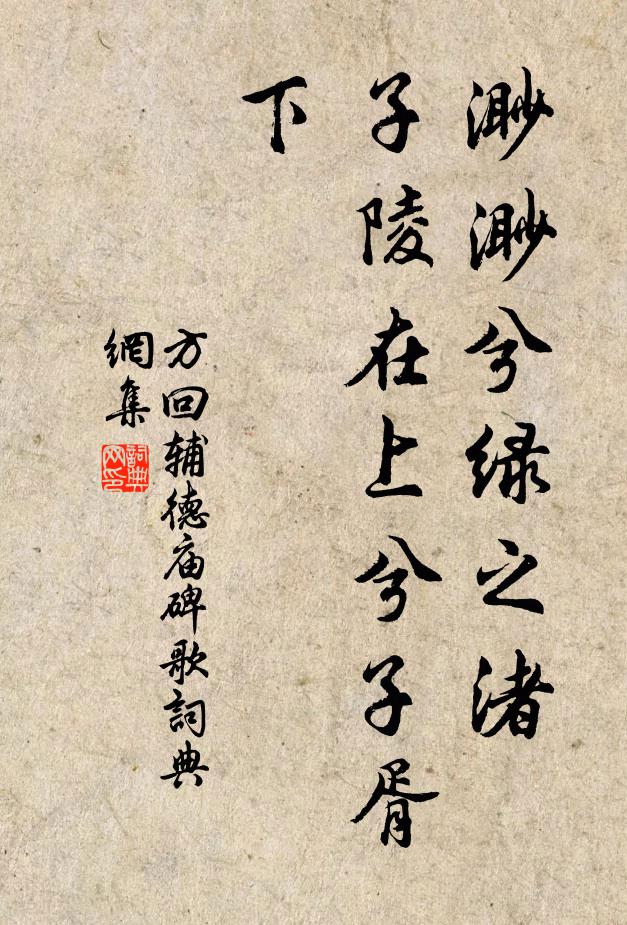 渺渺兮绿之渚
子陵在上兮子胥
下
方回辅德庙碑歌詞典
網集
詞典网印